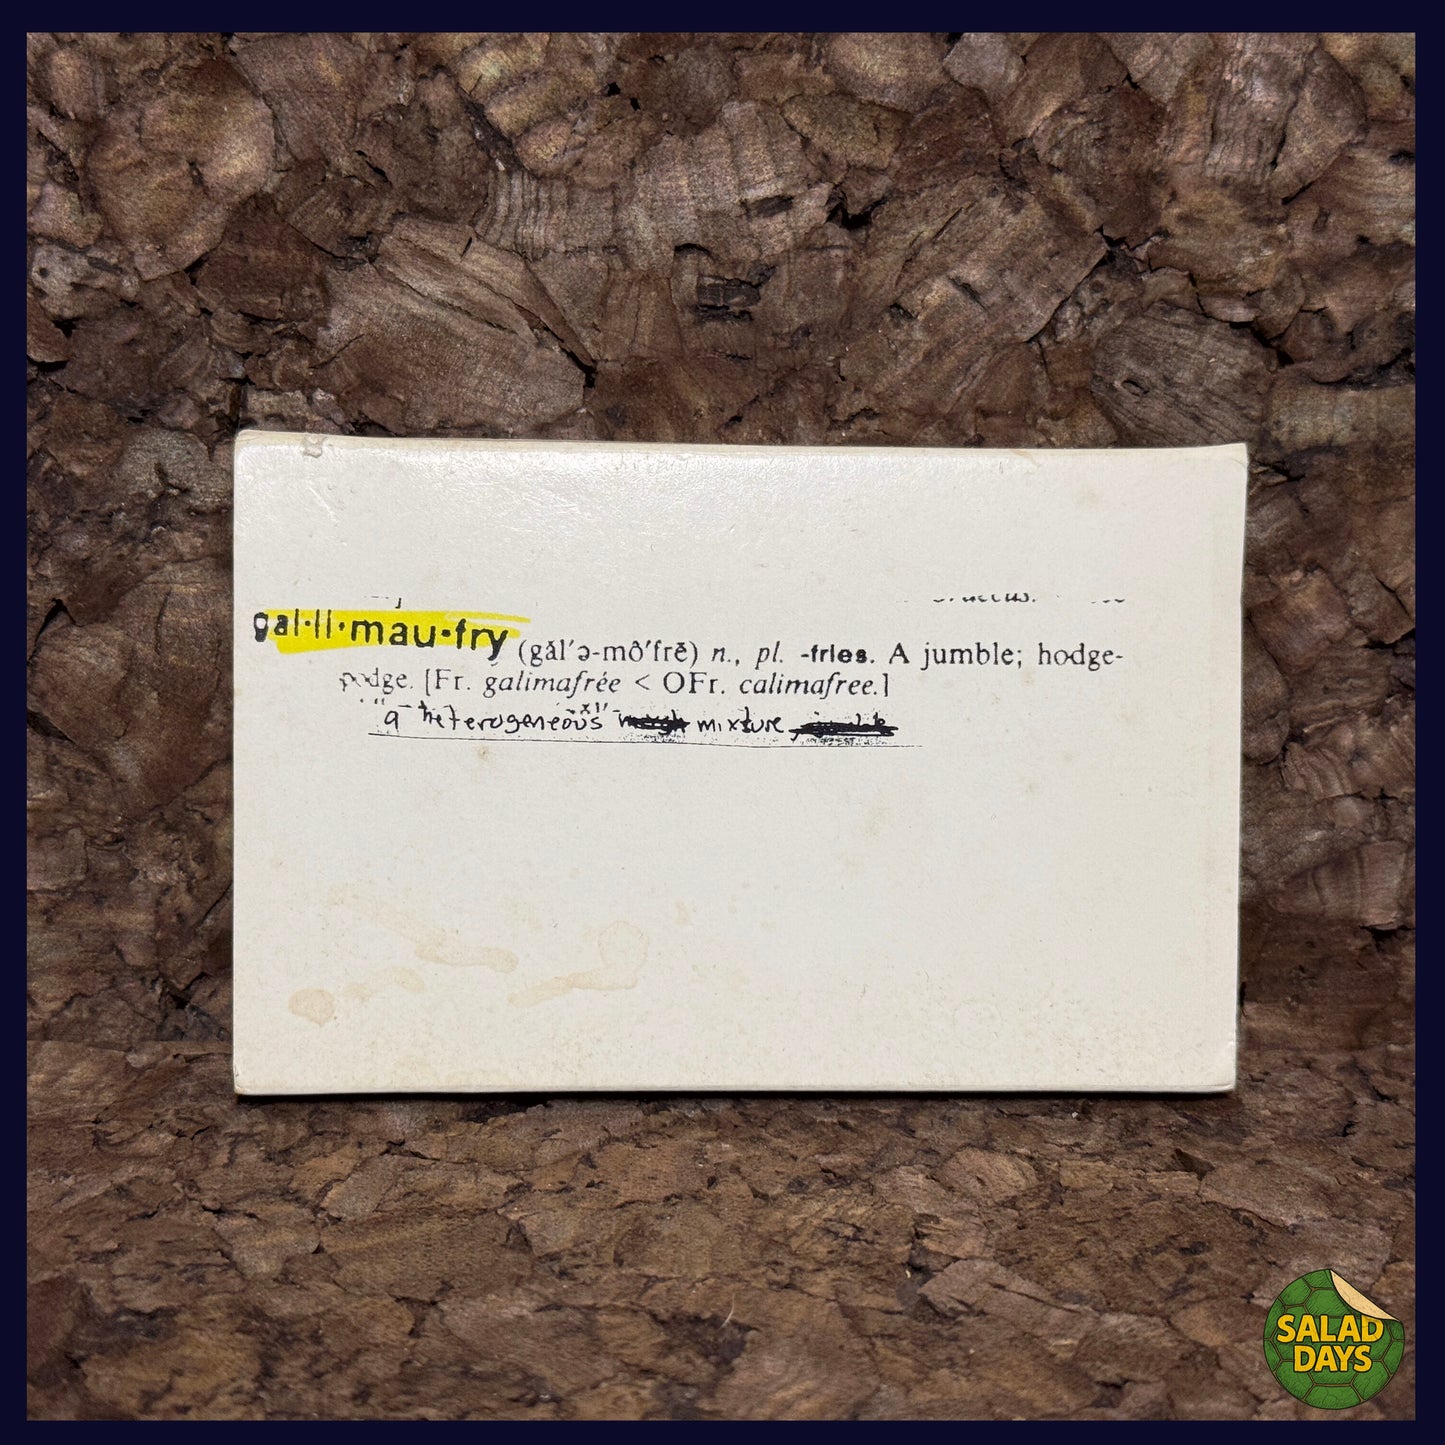 gal·li·mau·fry (găl′ə-mô′frē) n., pl. -fries. A jumble; hodge-
podge. [Fr. galimafrée < OFr. calimafree.]
a heterogeneous mixture
SALAD
DAYS